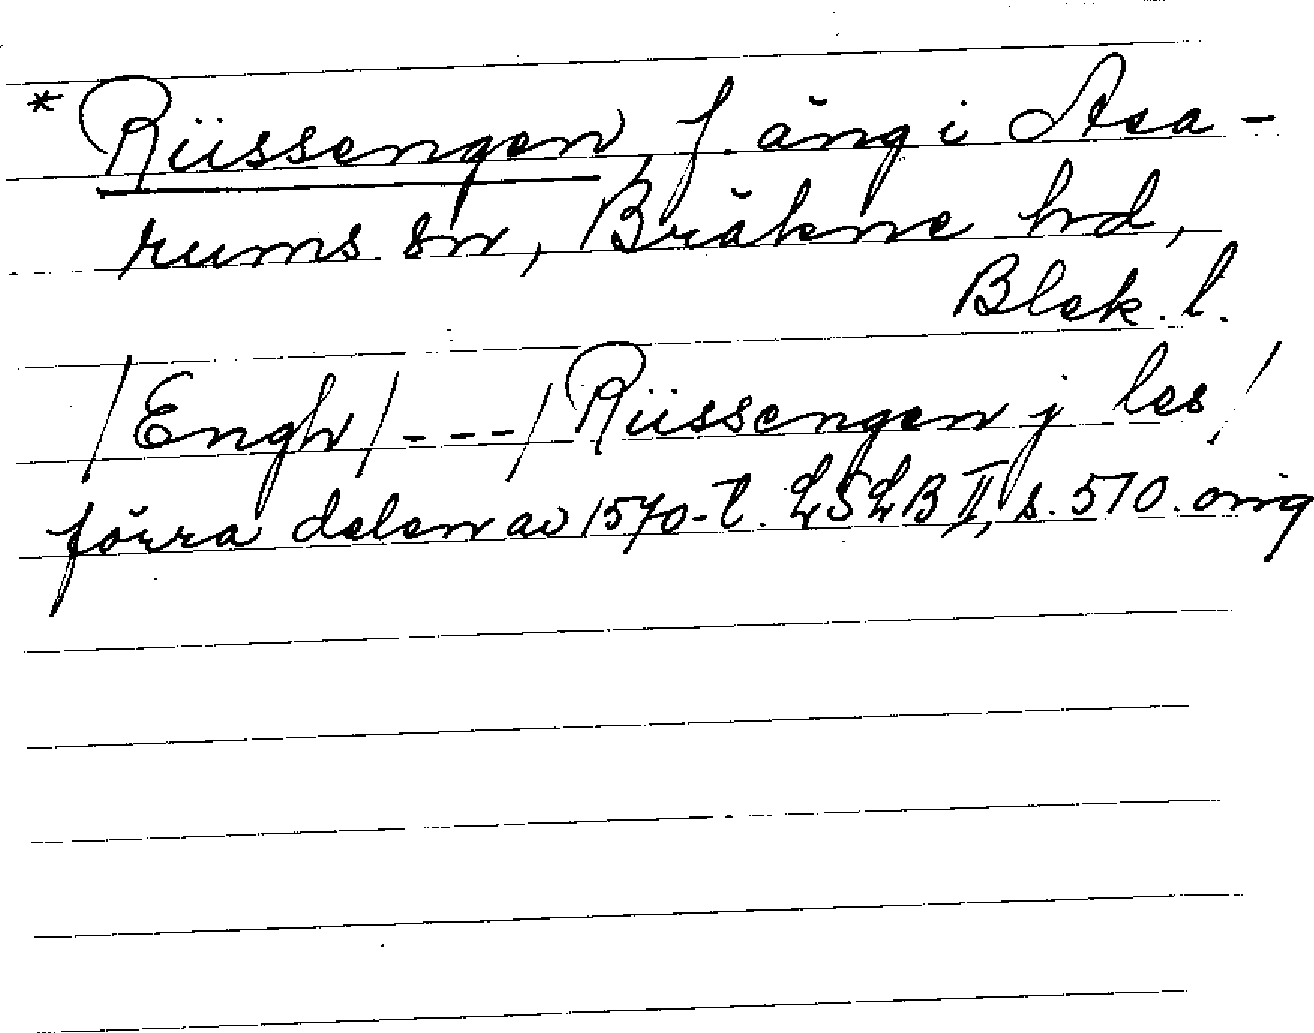 * Rüssengen, f. äng i Asa-
rums sn, Bräkne hd,
Blek. l.
/Engh/---/Rüssengen j les/
förra delen av 1570-t. LSLB II, s. 510. orig